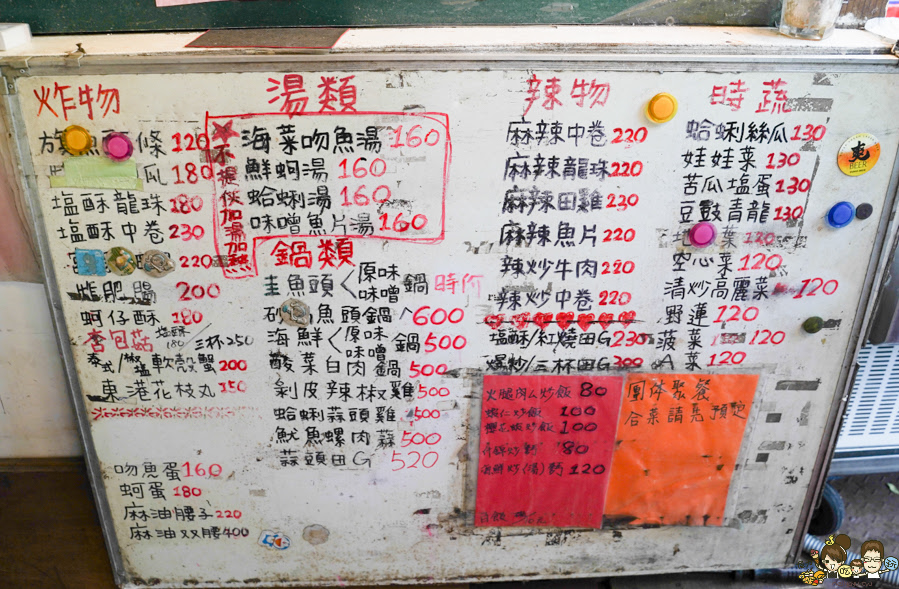 炸物
條 120
瓜 180
塩酥龍珠 180
塩酥中卷 230
220
炸肥腸 200
蚵仔酥 180
杏包菇 塩酥 180 / 三杯 250
泰式/椒塩 軟殼蟹 200
東港花枝丸 350
吻魚蛋 160
蚵蛋 180
麻油腰子 220
麻油双腰 400
湯類
海菜吻魚湯 160
鮮蚵湯 160
蛤蜊湯 160
味噌魚片湯 160
不提供加湯加熱
鍋類
魚頭<原味 味噌 鍋 時价
魚頭鍋 600
海鮮<原味 味噌 鍋 500
酸菜白肉鍋 500
剝皮辣椒雞 500
蛤蜊蒜頭雞 500
魷魚螺肉蒜 500
蒜頭田G 520
辣物
麻辣中卷 220
麻辣龍珠 220
麻辣田雞 230
麻辣魚片 220
辣炒牛肉 220
辣炒中卷 220
塩酥/紅燒田G 230
爆炒/三杯田G 300
時蔬
蛤蜊絲瓜 130
娃娃菜 130
苦瓜塩蛋 130
豆鼓青龍 130
地 菜 130
空心菜 120
清炒高麗菜 120
野蓮 120
菠菜 120
A菜 120
火腿肉絲炒飯 80
蝦仁炒飯 100
櫻花蝦炒飯 100
80
海鮮炒(湯)麵 120
白飯
團体聚餐
合菜請先預定